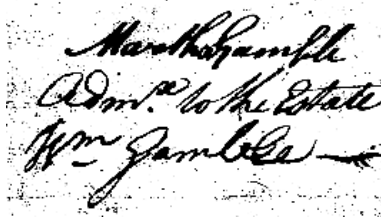 Martha Gamble
Adm.x to the Estate
Wm Gamble